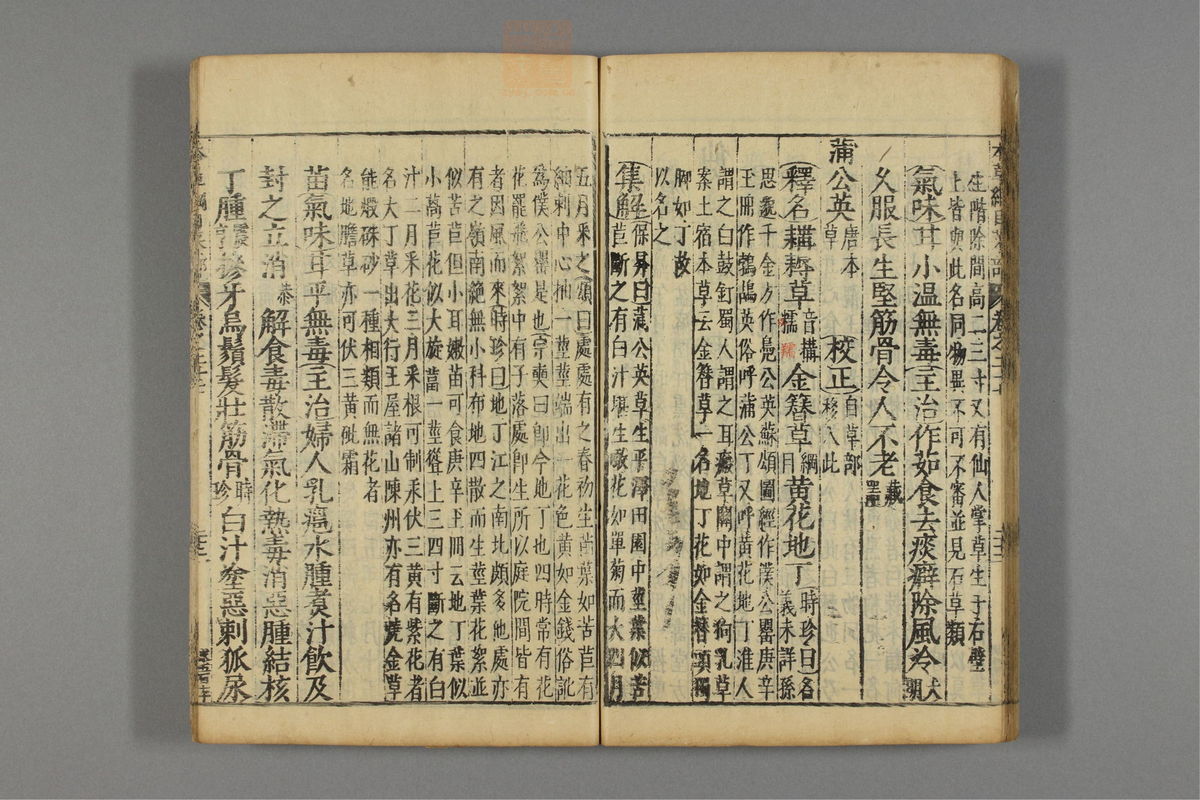 生階除間高二三寸又有仙人掌草生于石壁
上皆與此名同物異不可不審並見石草類
氣味甘小溫無毒主治作茹食去痰癖除風冷大明
久服長生堅筋骨令人不老藏器
蒲公英唐本草 校正自草部移入此
釋名耩耨草音構糯 金簪草綱目 黃花地丁時珍曰名義未詳孫
思邈千金方作鳧公英蘇頌圖經作僕公罌庚辛
玉冊作鵓鴣英俗呼蒲公丁又呼黃花地丁淮人
謂之白鼓釘蜀人謂之耳瘢草關中謂之狗乳草
案土宿本草云金簪草一名地丁花如金簪頭獨
脚如丁故
以名之
集解保昇曰蒲公英草生平澤田園中莖葉似苦
苣斷之有白汁堪生啖花如單菊而大四月
五月采之頌曰處處有之春初生苗葉如苦苣有
細刺中心抽一莖莖端出一花色黃如金錢俗訛
為僕公罌是也宗奭曰即今地丁也四時常有花
花罷飛絮絮中有子落處即生所以庭院間皆有
者因風而來時珍曰地丁江之南北頗多他處亦
有之嶺南絕無小科布地四散而生莖葉花絮並
似苦苣但小耳嫩苗可食庚辛玉冊云地丁葉似
小萵苣花似大旋葍一莖聳上三四寸斷之有白
汁二月采花三月采根可制汞伏三黃有紫花者
名大丁草出大行王屋諸山陳州亦有名燒金草
能煅硃砂一種相類而無花者
名地膽草亦可伏三黃砒霜
苗氣味甘平無毒主治婦人乳癰水腫煮汁飲及
封之立消恭 解食毒散滯氣化熱毒消惡腫結核
丁腫震亨 摻牙烏鬚髮壯筋骨時珍 白汁塗惡刺狐尿